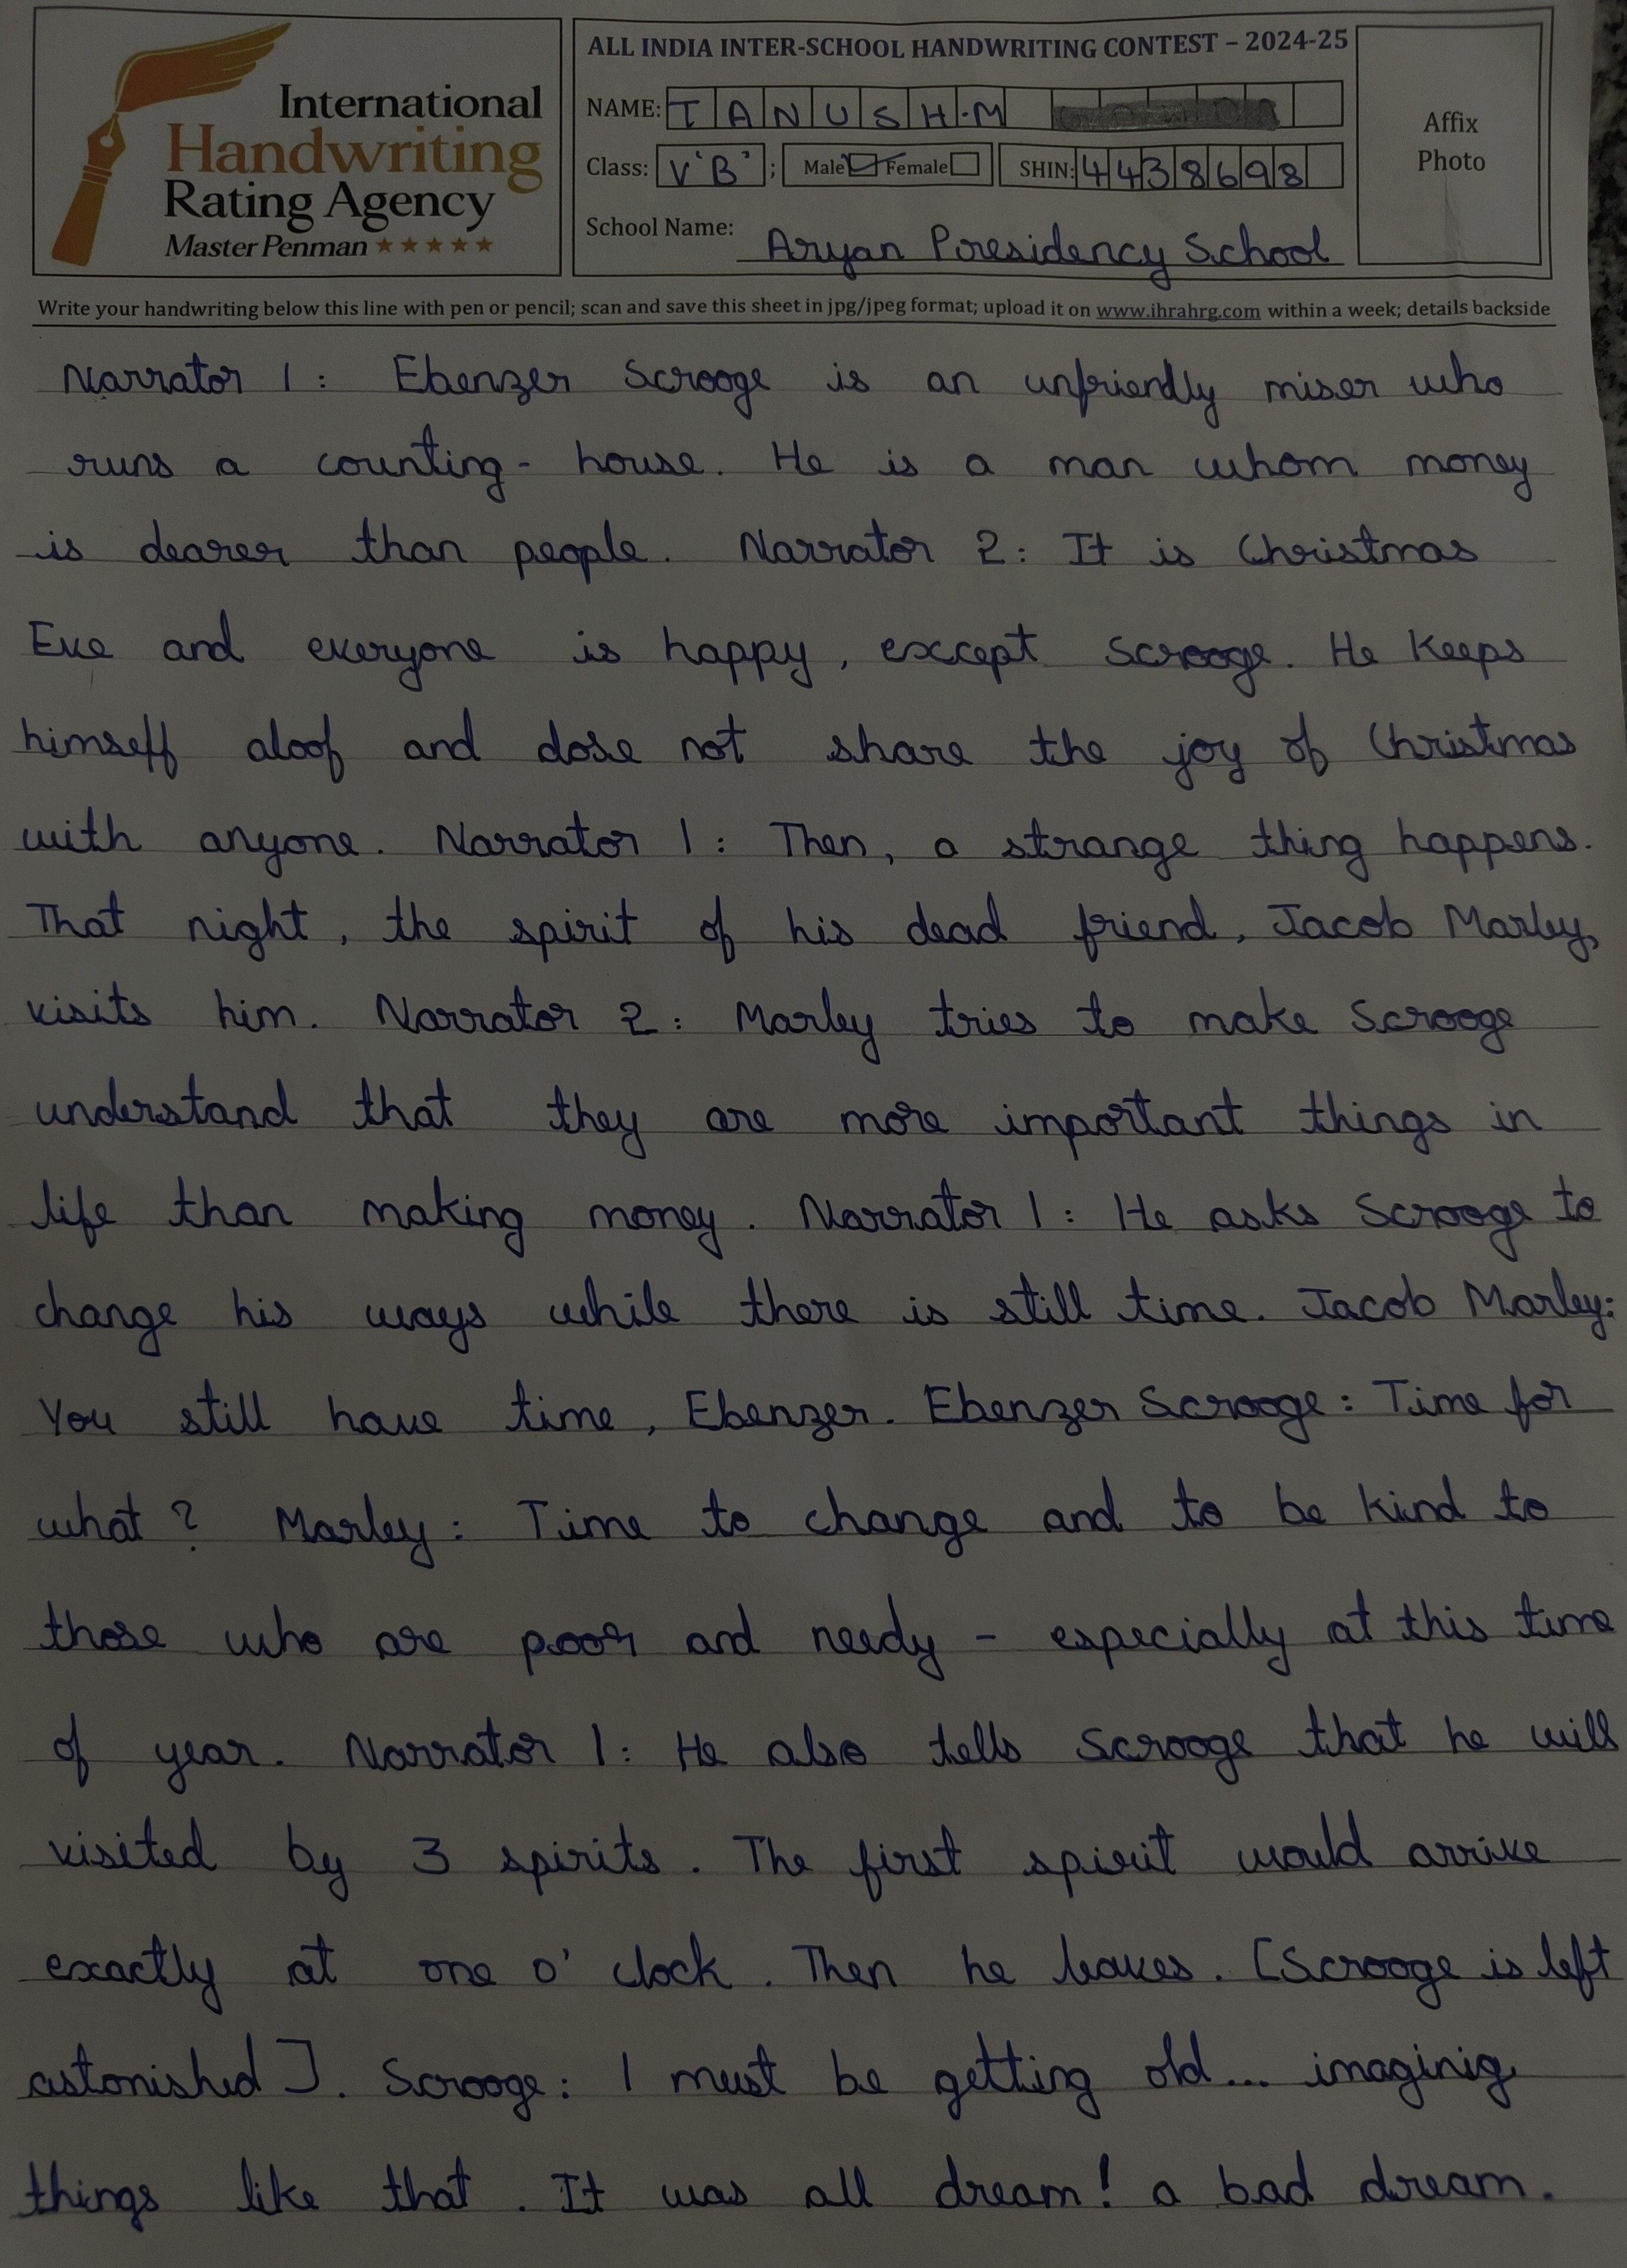 International
Handwriting
Rating Agency
Master Penman
ALL INDIA INTER-SCHOOL HANDWRITING CONTEST – 2024-25
NAME: TANUSH.M
Class: V 'B' ; Male Female SHIN: 4438698
School Name: Aryan Presidency School
Affix
Photo
Write your handwriting below this line with pen or pencil; scan and save this sheet in jpg/jpeg format; upload it on www.ihrahrg.com within a week; details backside
Narrator 1 : Ebenzer Scrooge is an unfriendly miser who
runs a counting - house. He is a man whom money
is dearer than people. Narrator 2: It is Christmas
Eve and everyone is happy, except Scrooge. He Keeps
himself aloof and dose not share the joy of Christmas
with anyone. Narrator 1 : Then, a strange thing happens.
That night, the spirit of his dead friend, Jacob Marley,
visits him. Narrator 2 : Marley tries to make Scrooge
understand that they are more important things in
life than making money. Narrator 1 : He asks Scrooge to
change his ways while there is still time. Jacob Marley:
You still have time, Ebenzer. Ebenzer Scrooge : Time for
what ? Marley : Time to change and to be kind to
those who are poor and needy - especially at this time
of year. Narrator 1 : He also tells Scrooge that he will
visited by 3 spirits. The first spirit would arrive
exactly at one o' clock. Then he leaves. [Scrooge is left
astonished]. Scrooge : I must be getting old... imaginig
things like that. It was all dream! a bad dream.